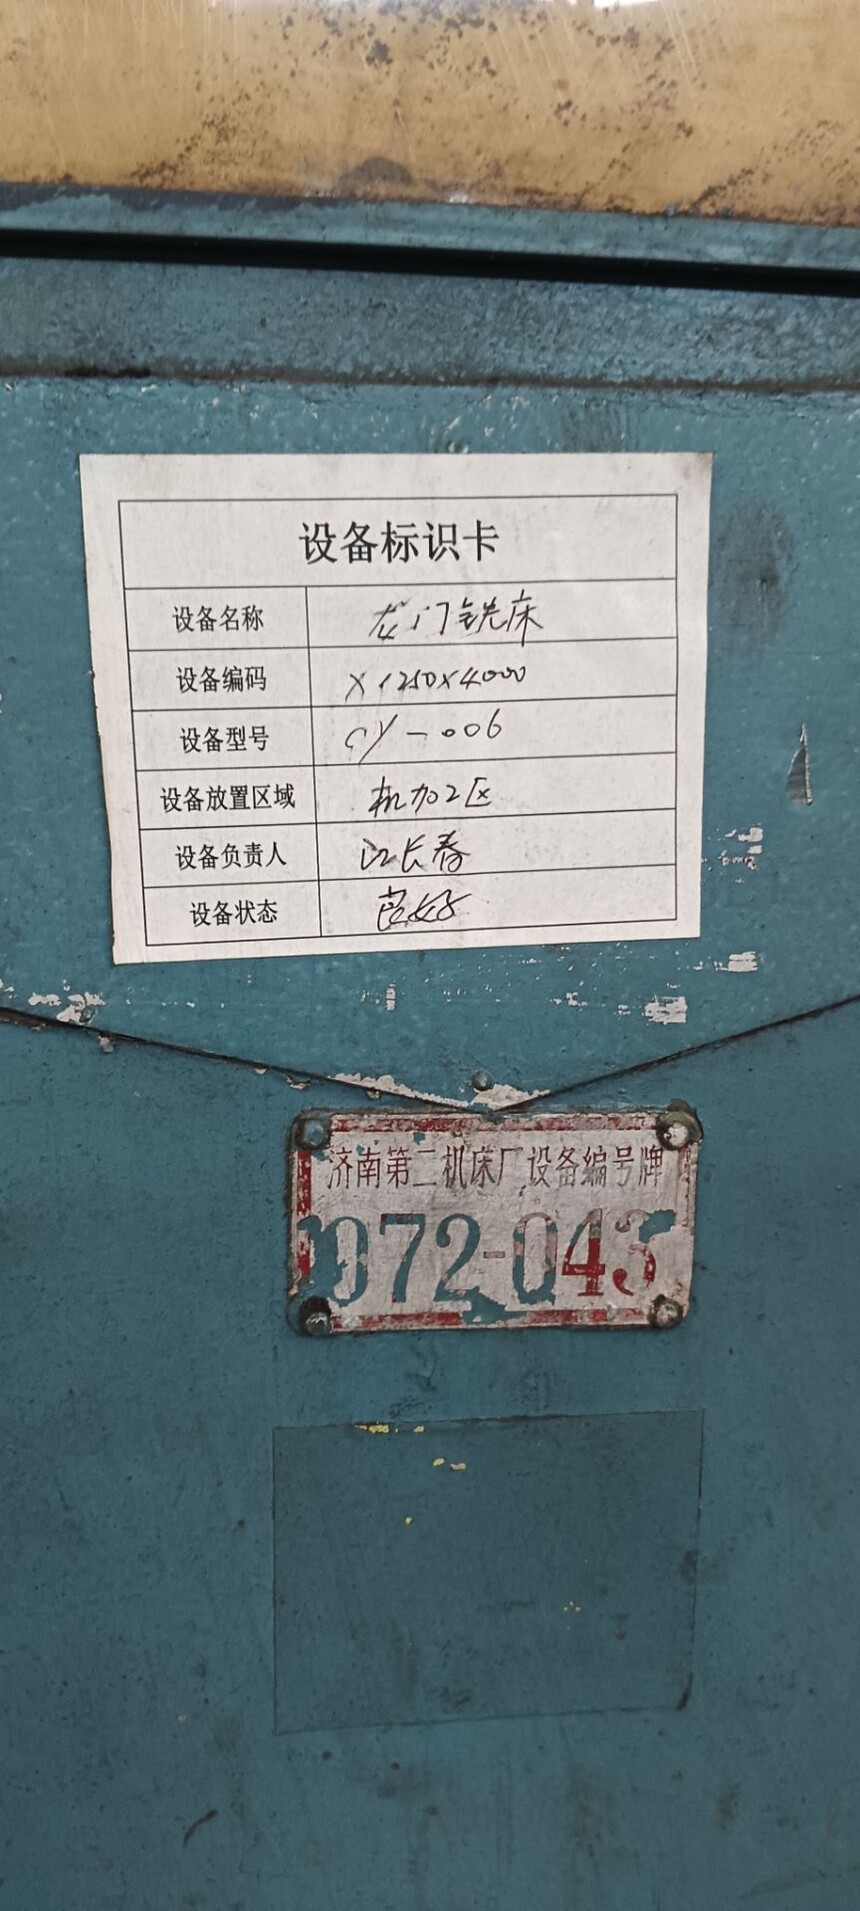 设备标识卡
设备名称 龙门铣床
设备编码 X1250X4000
设备型号 CY-006
设备放置区域 机加工区
设备负责人 江长春
设备状态 良好
济南第二机床厂设备编号牌
072-043